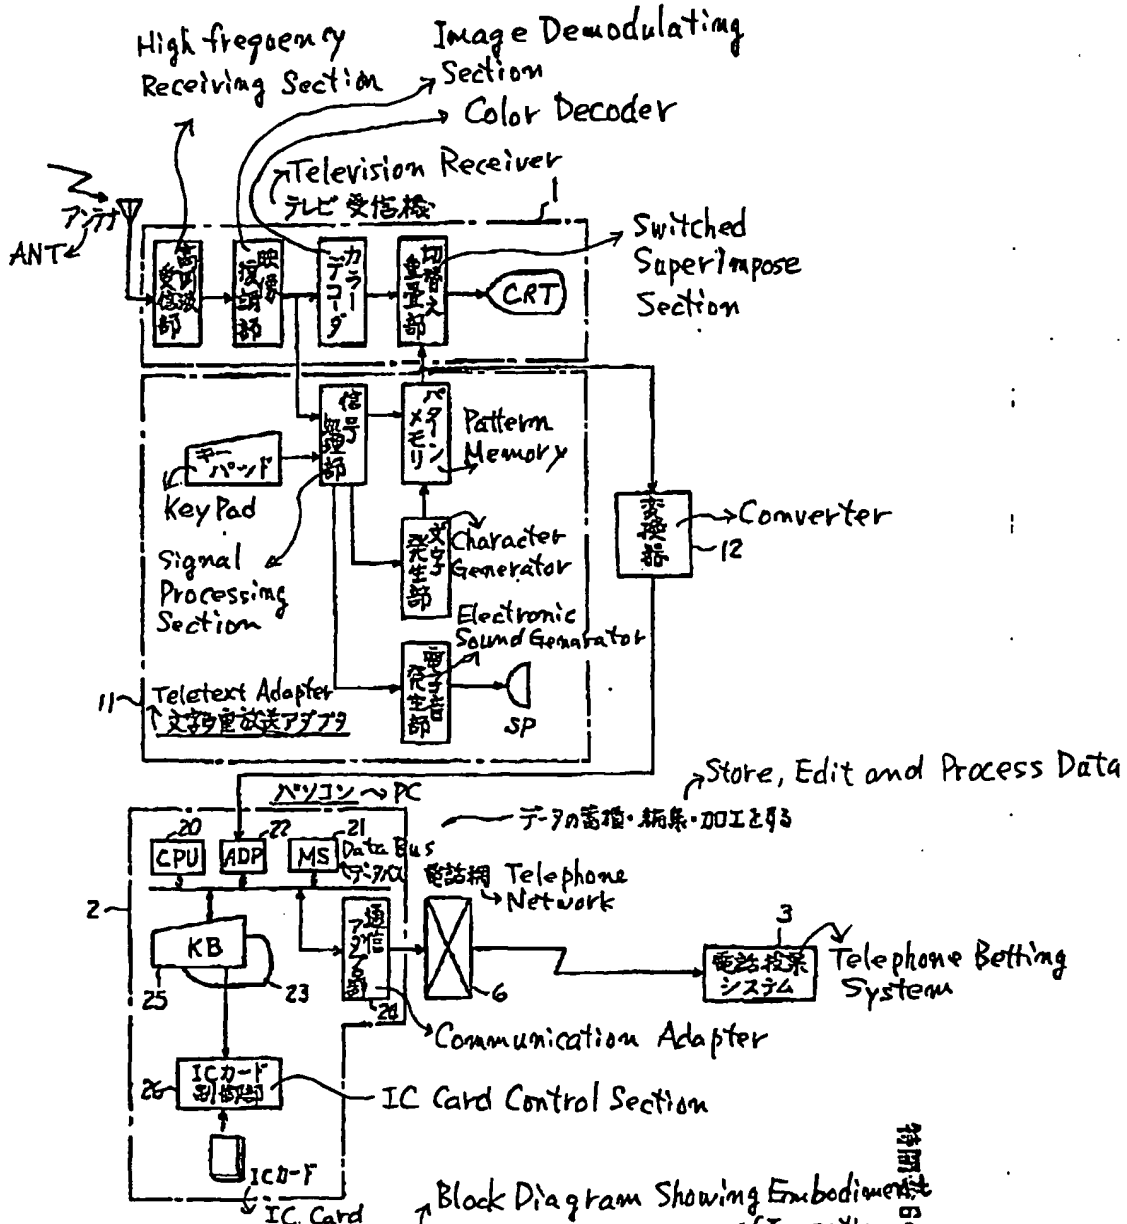 High frequency
Receiving Section
Image Demodulating
Section
Color Decoder
Television Receiver
テレビ受信機
1
アンテナ
ANT
高周波
受信部
映像
復調部
カラー
デコーダ
切替え
重畳部
CRT
Switched
Superimpose
Section
信号
処理部
パターン
メモリ
Pattern
Memory
キー
パッド
Key Pad
Signal
Processing
Section
文字
発生部
Character
Generator
変換器
Converter
12
Electronic
Sound Genarator
電子音
発生部
SP
11
Teletext Adapter
文字多重放送アダプタ
Store, Edit and Process Data
パソコン
PC
データの蓄積・編集・加工をする
20
22
21
CPU
ADP
MS
Data Bus
データバス
電話網
Telephone
Network
2
KB
25
23
通信
アダプタ部
24
6
3
電話投票
システム
Telephone Betting
System
Communication Adapter
26
ICカード
制御部
IC Card Control Section
ICカード
IC Card
Block Diagram Showing Embodiment